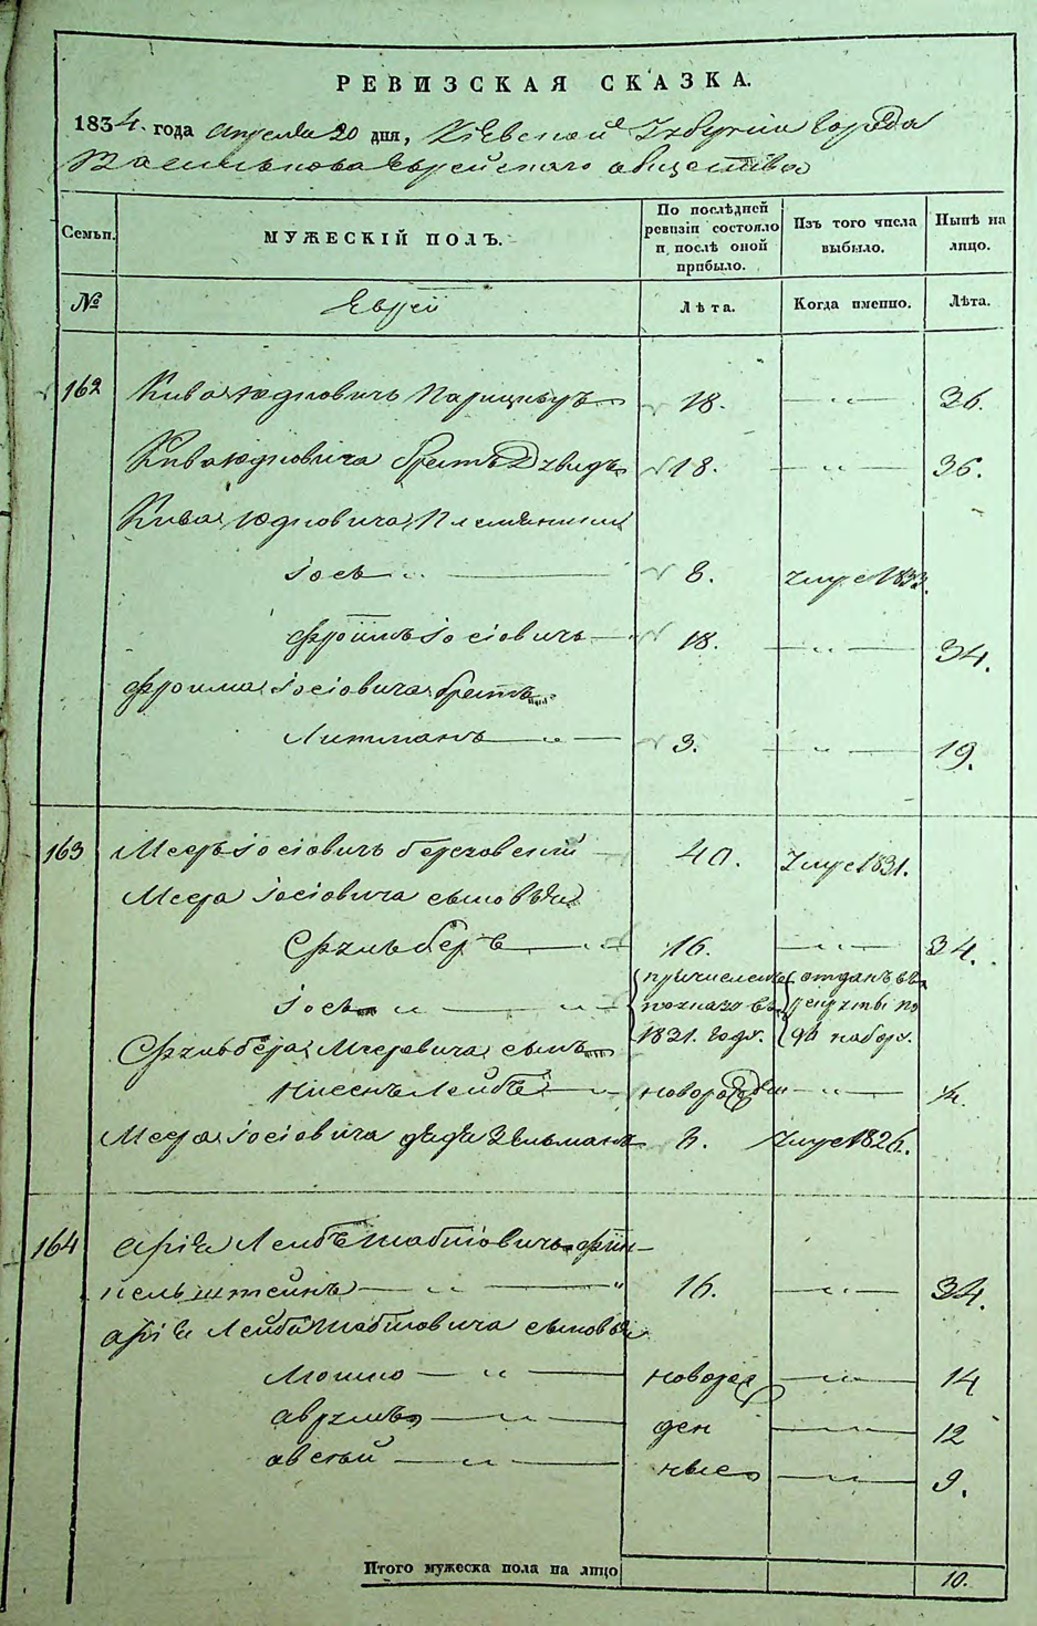 РЕВИЗСКАЯ СКАЗКА.
1834. года апреля 20 дня, Кіевской Губерніи города
Василькова Еврейскаго общества
Семьи.
МУЖЕСКІЙ ПОЛЪ.
По послѣдней
ревизіи состояло
и послѣ оной
прибыло.
Изъ того числа
выбыло.
Нынѣ на
лицо.
№
Евреи
Лѣта.
Когда именно.
Лѣта.
162 Кива Юдковичъ 18. — „ — 36.
Кива Юдковича братъ Дувидъ 18. — „ — 36.
Кива Юдковича Племянники
Іось „ — 8. умре 1833.
Фроимъ Іосіовичъ — 18. — „ — 34.
Фроима Іосіовича братъ
Литманъ — „ — 3. — „ — 19.
163 Мееръ Іосіовичъ Берховскій 40. умре 1831.
Меера Іосіовича сыновья
Сруль Беръ — „ 16. — „ — 34.
Іось „ — „ причисленъ по указу въ 1831. году. отданъ въ рекруты по 94 набору.
Сруль Бера Мееровича сынъ
Нисенъ Лейбъ — „ новорожден — „ — ½.
Меера Іосіовича дядя Зельманъ 3. умре 1826.
164 Аріе Лейбъ Шабшіовичъ Фин-
кельштейнъ — „ — „ 16. — „ — 34.
Аріе Лейбы Шабшовича сыновья
Мошко — „ — новорож — „ — 14
Аврумъ — „ — ден — „ — 12
Авсѣй — „ — ные — „ — 9.
Итого мужеска пола на лицо 10.